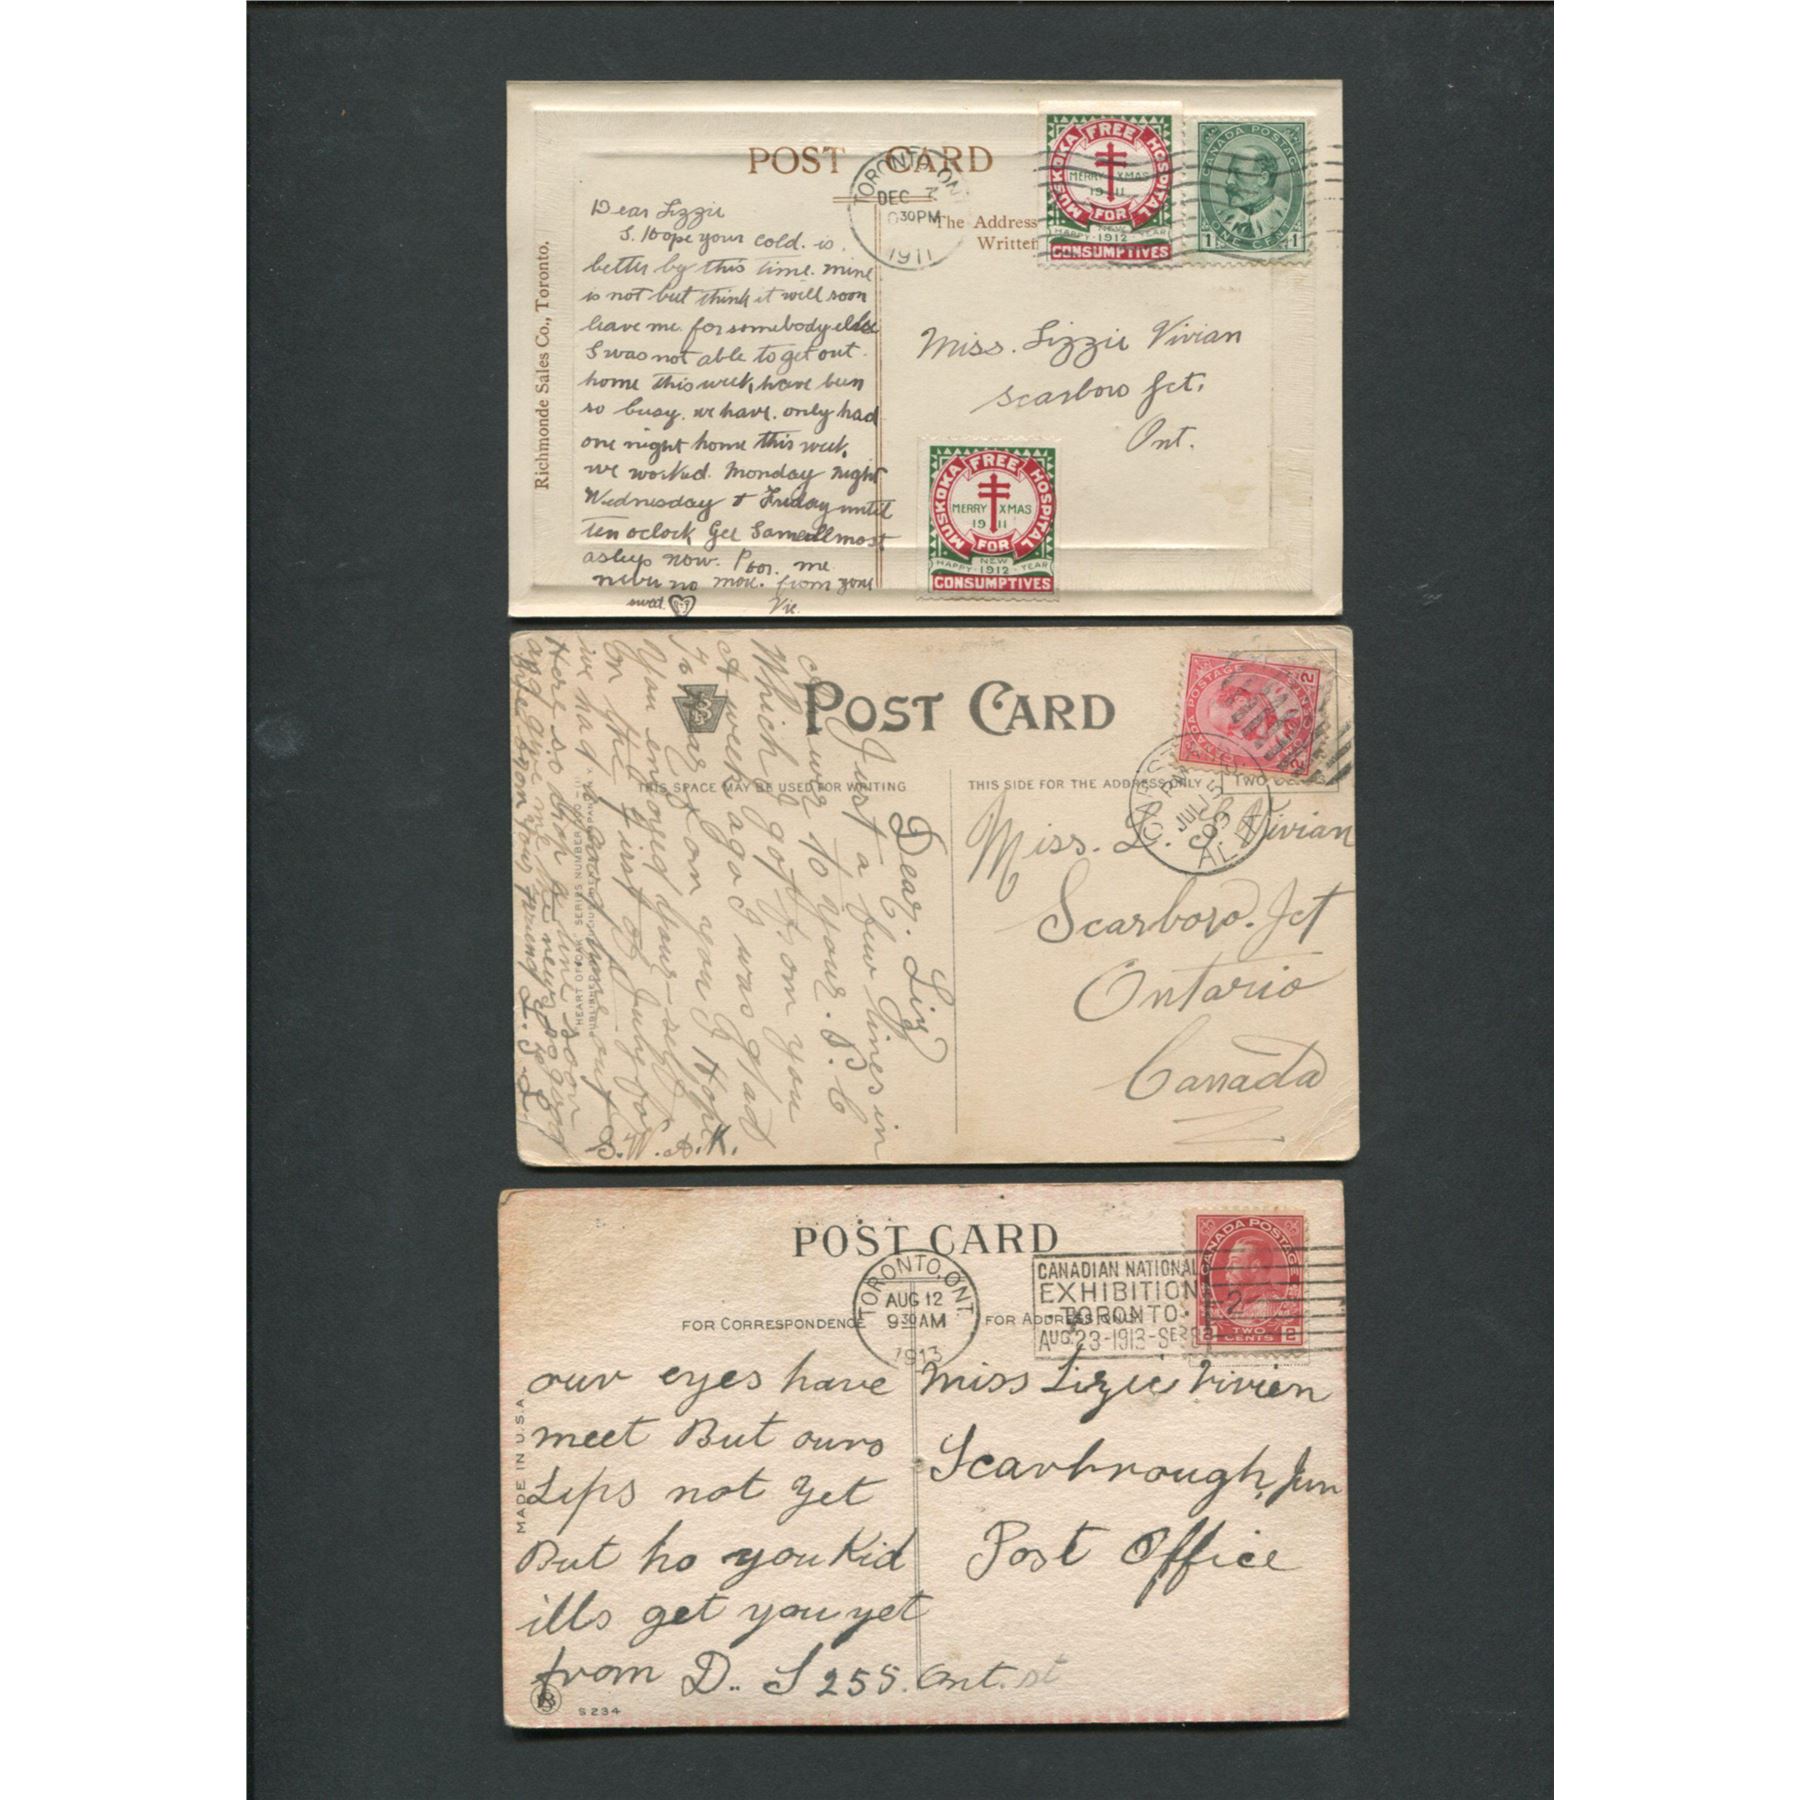 POST CARD
Richmonde Sales Co., Toronto.
TORONTO, ONT
DEC 7
30PM
1911
The Address
Written
MUSKOKA FREE HOSPITAL
MERRY XMAS
1911
FOR
NEW
HAPPY 1912 YEAR
CONSUMPTIVES
CANADA POSTAGE
1 ONE CENT 1
Dear Lizzie
I. Hope your cold. is.
better by this time. mine
is not but think it will soon
leave me for somebody else
I was not able to get out.
home this week, have been
so busy. we have. only had
one night home this week,
we worked. Monday night
Wednesday & Friday until
ten oclock Gee Sam allmost
asleep now. Poor. me
never no more. from your
sweet.
Vic.
Miss. Lizzie Vivian
Scarboro Jct.
Ont.
MUSKOKA FREE HOSPITAL
MERRY XMAS
1911
FOR
NEW
HAPPY 1912 YEAR
CONSUMPTIVES
POST CARD
THIS SPACE MAY BE USED FOR WRITING
THIS SIDE FOR THE ADDRESS ONLY
TWO CENTS
CANADA POSTAGE
2 TWO CENTS 2
JUL 5
09
ALTA
"HEART OF OAK" SERIES NUMBER
Dear. Liz
Just a few lines in
answer to your. P. C
Which I got from you
A week ago I was glad
to hear from you I Hope
You enjoyed your-self
on the first of July for
we had a good time out
Here so drop a line soon
and give me the news so good
bye from your friend
B. W. A. K.
Miss. L. Vivian
Scarboro. Jct
Ontario
Canada
POST CARD
TORONTO, ONT.
AUG 12
9 30 AM
1913
CANADIAN NATIONAL
EXHIBITION
TORONTO.
AUG. 23-1913-SEP 8
CANADA POSTAGE
2 TWO CENTS 2
FOR CORRESPONDENCE
FOR ADDRESS ONLY
MADE IN U.S.A.
our eyes have
meet But ours
Lips not yet
But ho you Kid
ills get you yet
from D.. S 255. Ont. st
Miss Lizzie Vivien
Scarbrough, Jun
Post Office
S 234